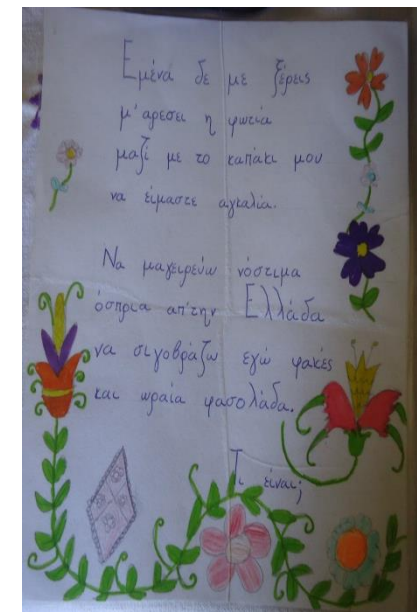 Εμένα δε με ξέρεις
μ' αρεσει η φωτιά
μαζί με το καπάκι μου
να είμαστε αγκαλιά.
Να μαγειρεύω νόστιμα
όσπρια απ' την Ελλάδα
να σιγοβράζω εγώ φακές
και ωραία φασολάδα.
Τι είναι;